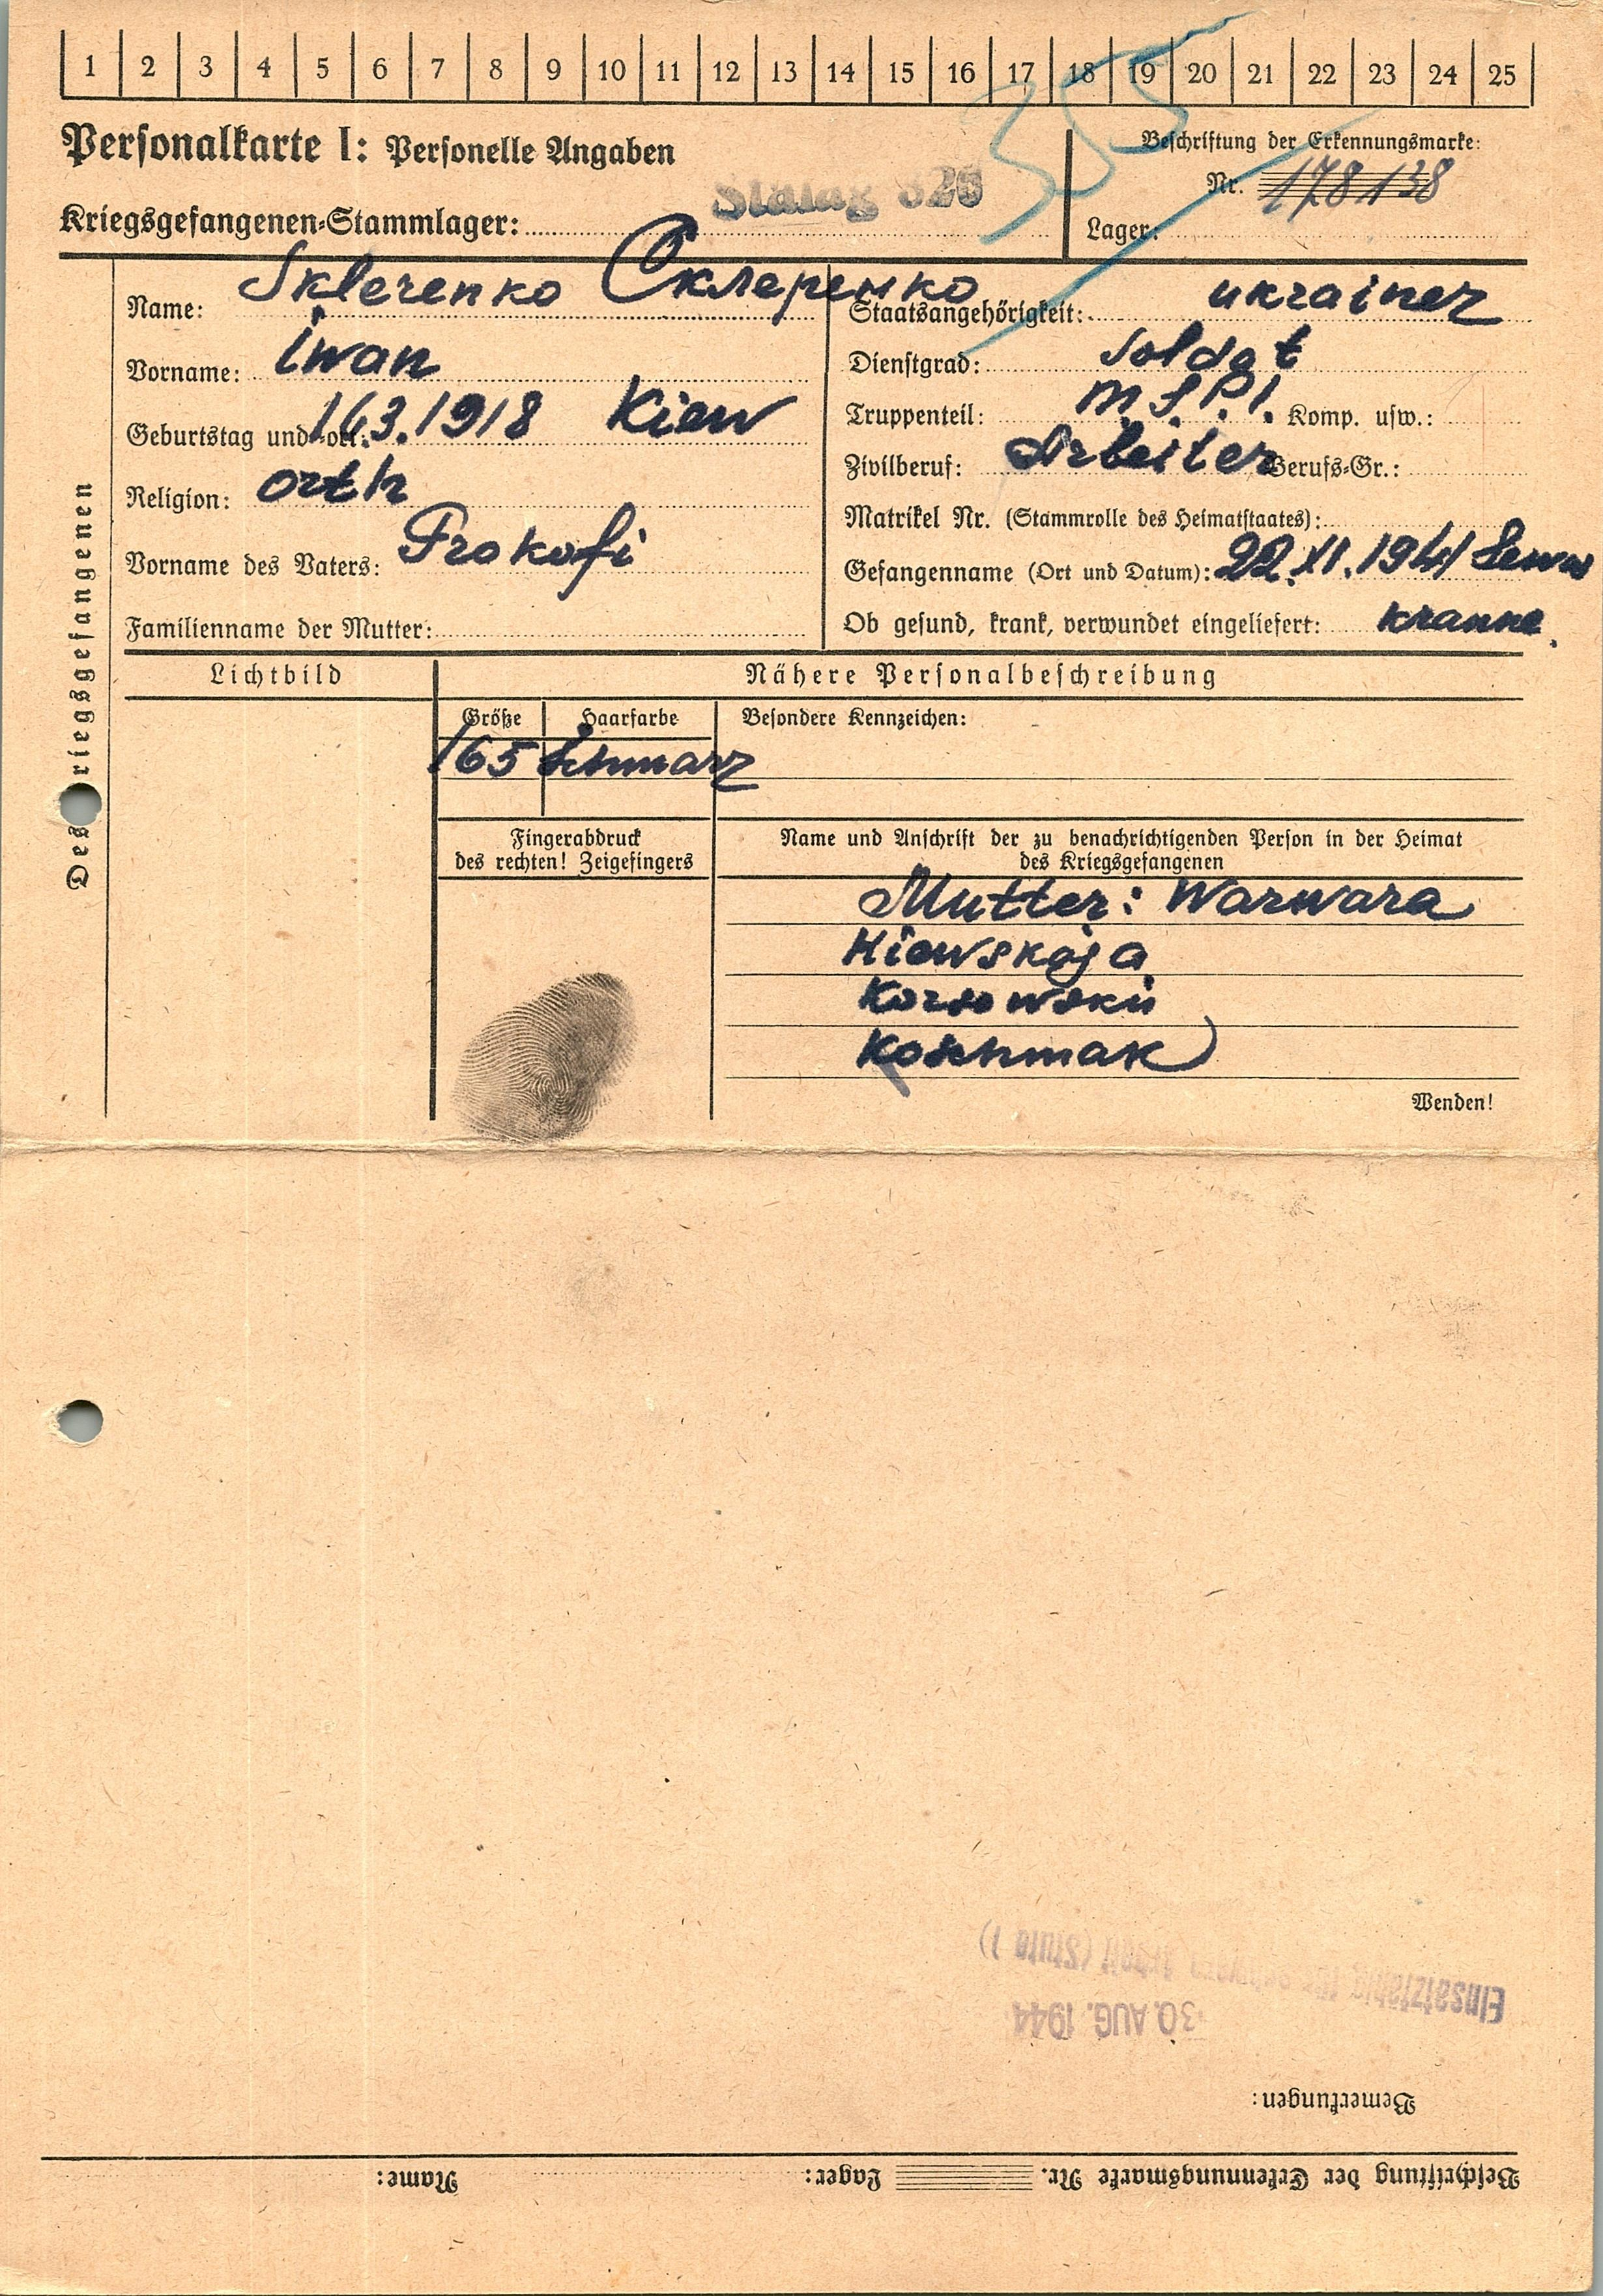 1 2 3 4 5 6 7 8 9 10 11 12 13 14 15 16 17 18 19 20 21 22 23 24 25
35
Personalkarte I: Personelle Angaben
Beschriftung der Erkennungsmarke:
Nr. 178138
Kriegsgefangenen-Stammlager: Stalag 326
Lager:
Des Kriegsgefangenen
Name: Sklerenko Склеренко
Vorname: Iwan
Geburtstag und -ort: 16.3.1918 Kiew
Religion: orth
Vorname des Vaters: Prokofi
Familienname der Mutter:
Staatsangehörigkeit: ukrainer
Dienstgrad: Soldat
Truppenteil: Komp. usw.:
Zivilberuf: Arbeiter Berufs-Gr.:
Matrikel Nr. (Stammrolle des Heimatstaates):
Gefangenname (Ort und Datum): 22.XI.1941
Ob gesund, krank, verwundet eingeliefert:
Lichtbild
Nähere Personalbeschreibung
Größe Haarfarbe Besondere Kennzeichen:
165 Schwarz
Fingerabdruck
des rechten! Zeigefingers
Name und Anschrift der zu benachrichtigenden Person in der Heimat
des Kriegsgefangenen
Mutter: Warwara
Kiewskaja
Koschmak
Wenden!
Beschriftung der Erkennungsmarke Nr. Lager: Name:
Bemerkungen:
30. AUG. 1944
Einsatzfähig für schwere Arbeit (Stufe 1)